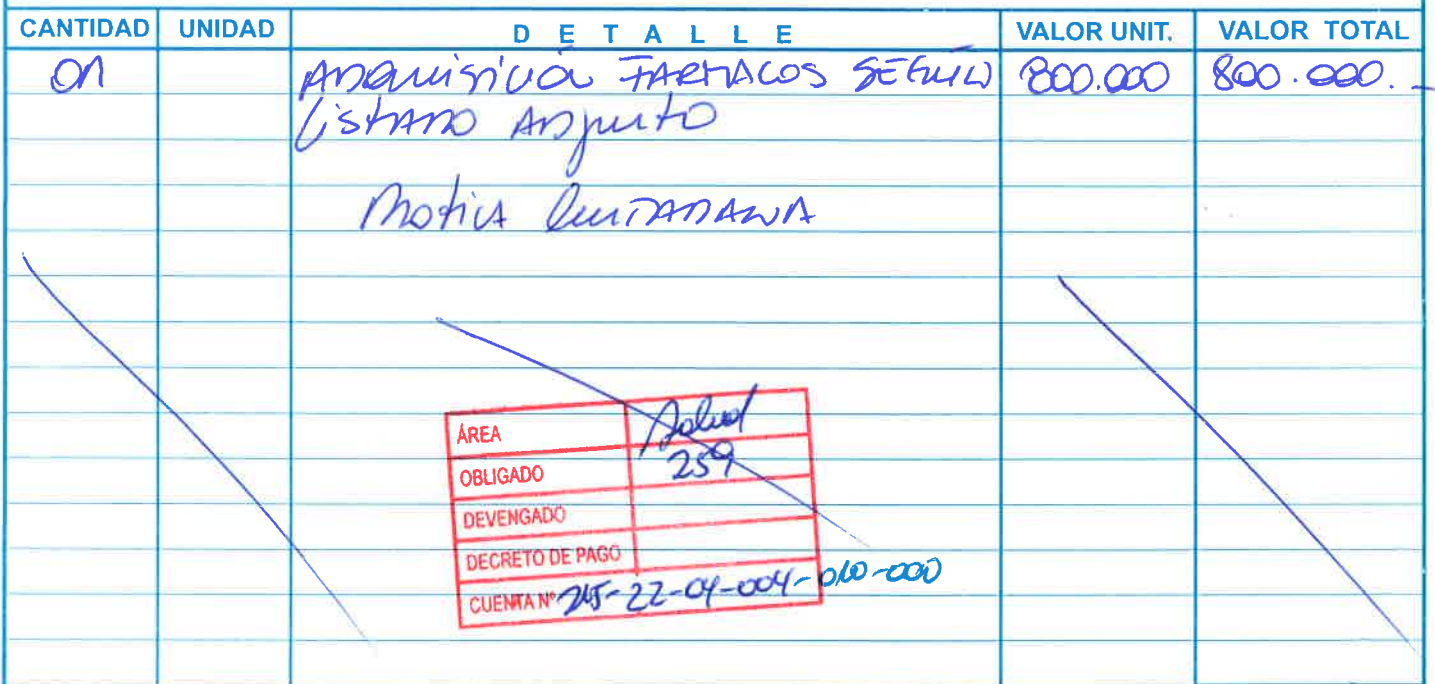 CANTIDAD UNIDAD DETALLE VALOR UNIT. VALOR TOTAL
01 ADQUISICIÓN FARMACOS SEGÚN 800.000 800.000.-
LISTADO ADJUNTO
CIUDADANA
ÁREA Salud
OBLIGADO 259
DEVENGADO
DECRETO DE PAGO
CUENTA Nº 215-22-04-004-010-000